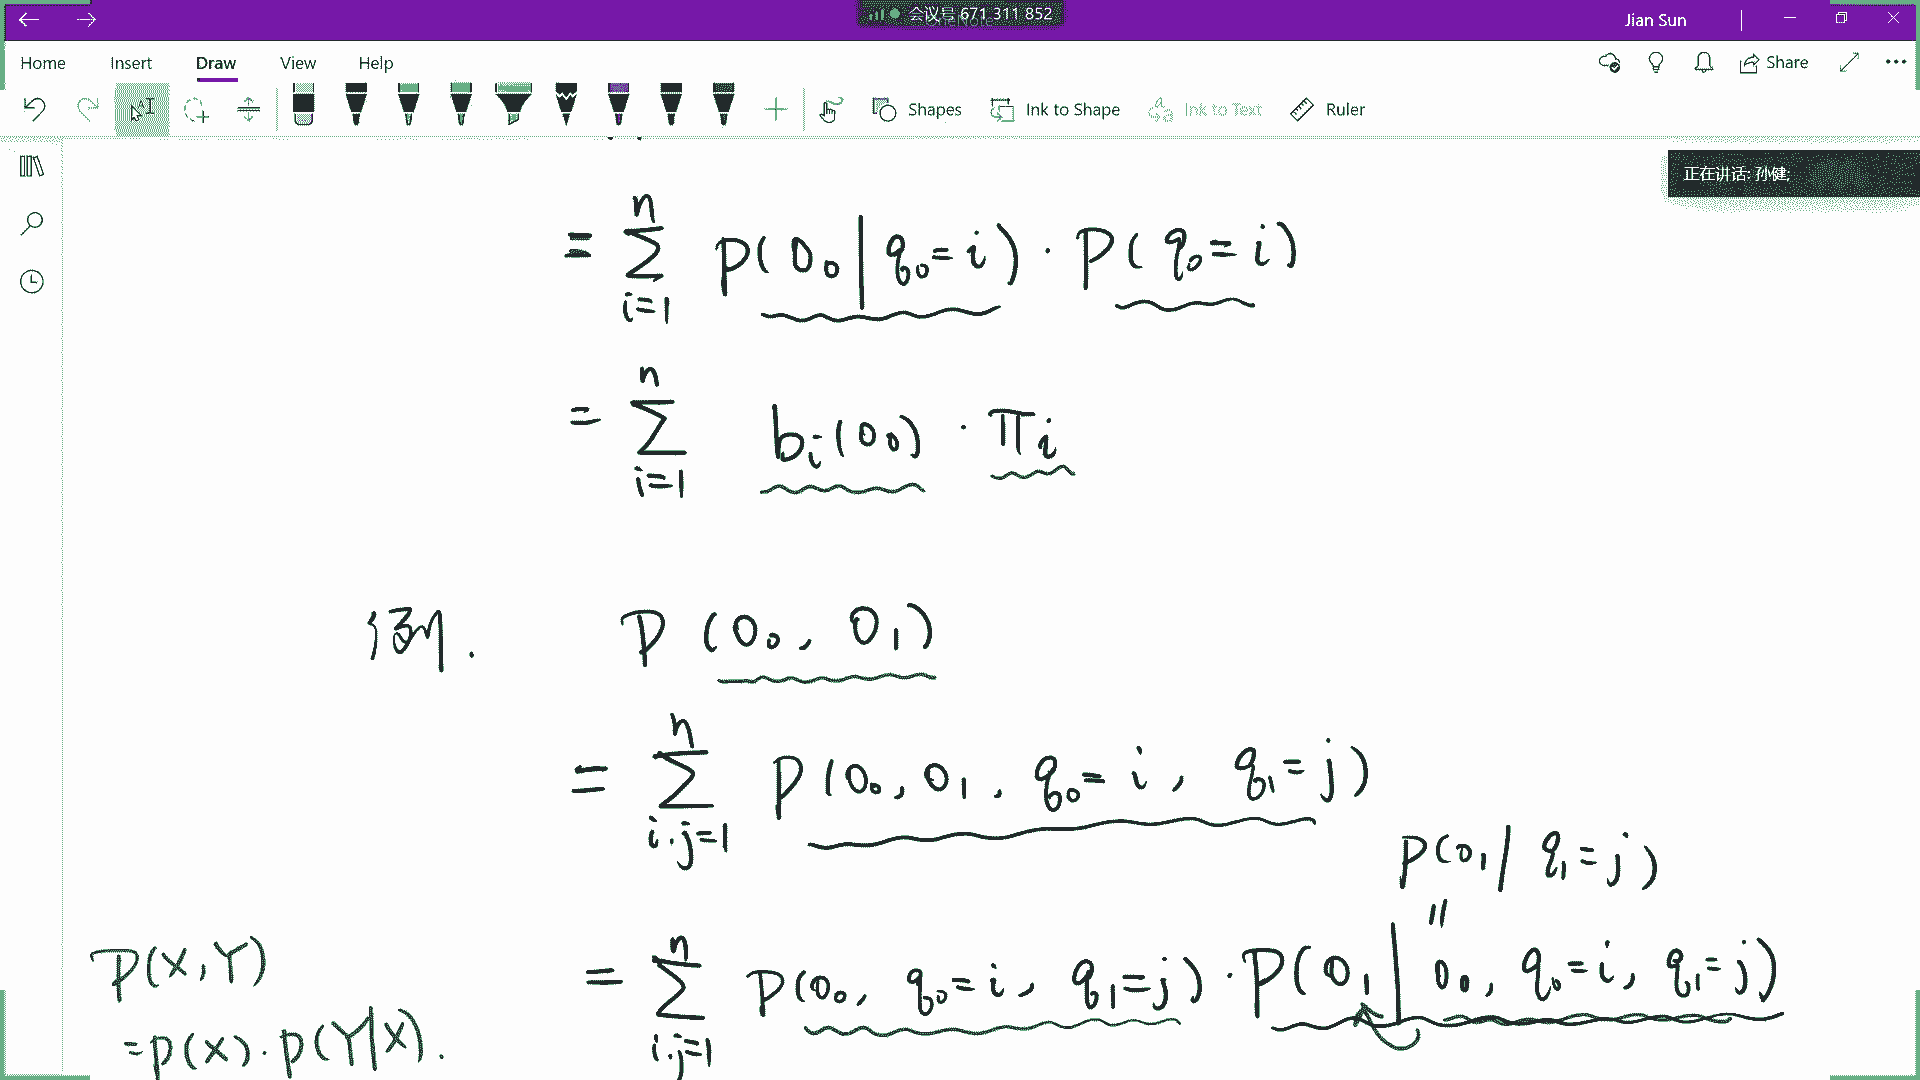 会议号 671 311 852
Jian Sun
Home Insert Draw View Help
Share
Shapes Ink to Shape Ink to Text Ruler
正在讲话: 孙健;
= \sum_{i=1}^{n} P(O_0 | q_0 = i) · P(q_0 = i)
= \sum_{i=1}^{n} b_i(O_0) · π_i
例. P(O_0, O_1)
= \sum_{i.j=1}^{n} P(O_0, O_1, q_0 = i, q_1 = j)
P(O_1 | q_1 = j)
=
= \sum_{i.j=1}^{n} P(O_0, q_0 = i, q_1 = j) · P(O_1 | O_0, q_0 = i, q_1 = j)
P(X, Y)
= P(X) · P(Y|X).